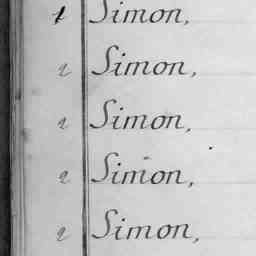 1 Simon,
2 Simon,
2 Simon,
2 Simon,
2 Simon,